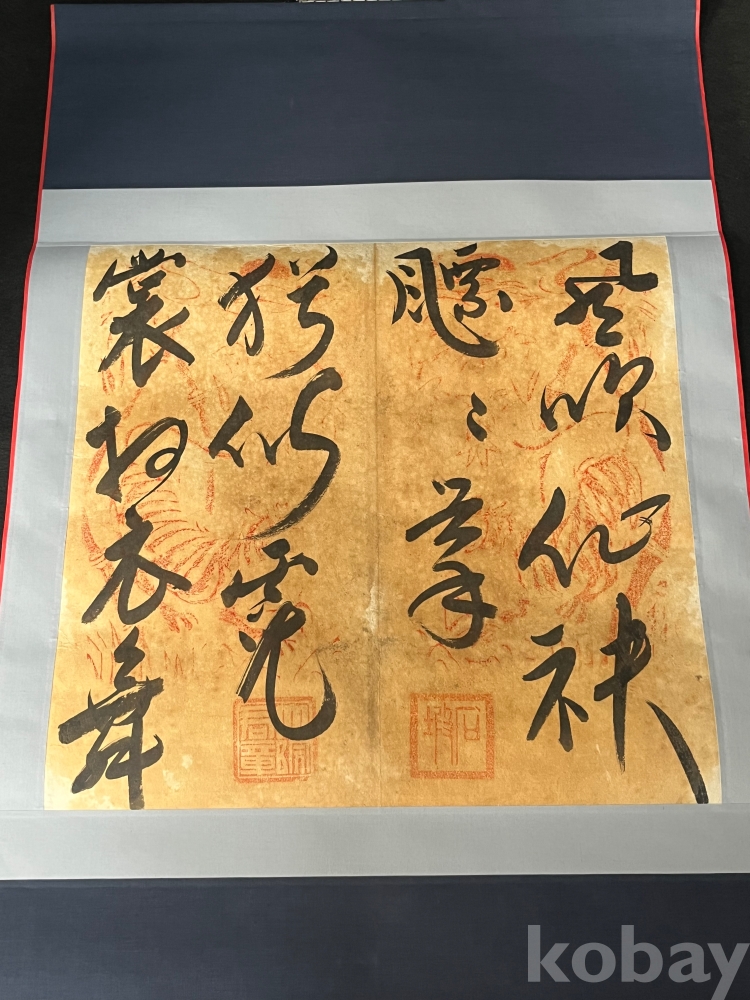 風吹仙袂
飃〻舉
猶似霓
裳羽衣舞
kobay